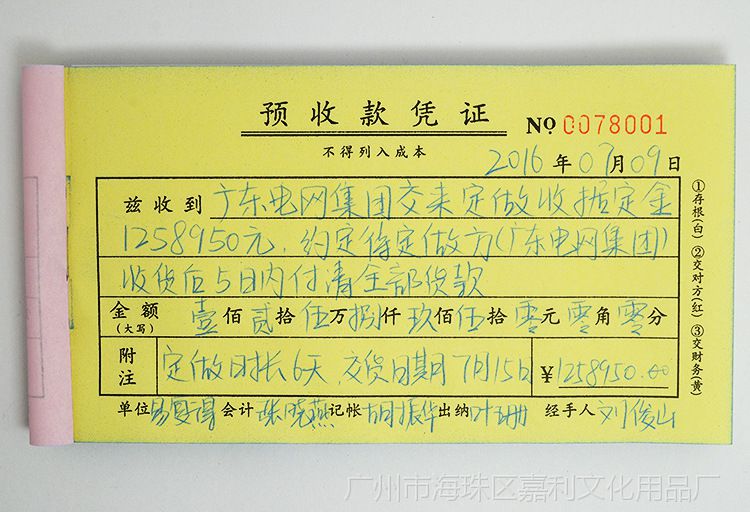 预收款凭证
No 0078001
不得列入成本
2016年07月09日
兹收到 广东电网集团交来定做收据定金
1258950元，约定待定做方（广东电网集团）
收货后5日内付清全部货款
金额（大写） 壹佰贰拾伍万捌仟玖佰伍拾零元零角零分
附注 定做时长6天，交货日期7月15日 ¥1258950.00
单位 易复得 会计 张晓燕 记帐 胡振华 出纳 叶珊 经手人 刘俊山
①存根(白) ②交对方(红) ③交财务(黄)
广州市海珠区嘉利文化用品厂